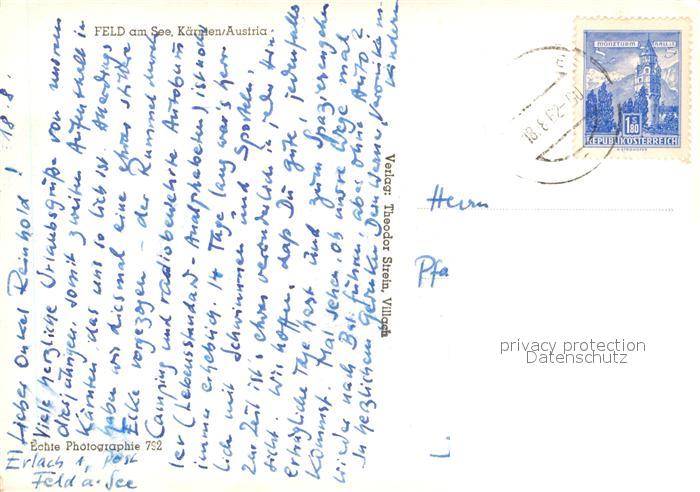 FELD am See, Kärnten/Austria
18.8.
Lieber Onkel Reinhold!
Viele herzliche Urlaubsgrüße von unserem
diesjährigen, somit zweiten Aufenthalt in
Kärnten, das uns so lieb ist. Allerdings
haben wir diesmal eine etwas stillere
Ecke vorgezogen – der Rummel durch
Camping und radiobewehrte Autobum
ler (Lebensstandard-Analphabeten) ist noch
immer erheblich. 14 Tage lang war's herr
lich mit Schwimmen und Sporteln,
zur Zeit ist's etwas veränderlich in jeder Hin
sicht. Wir hoffen, daß Du gute, jedenfalls
erträgliche Tage hast und zum Spazierengehen
kommst. Mal sehen, ob unsre Wege mal
wieder nach führen, aber ohne Auto?
In herzlichem Gedenken Dein Werner
Kindern
Echte Photographie 792
Erlach 1, Post
Feld a. See
Verlag: Theodor Strein, Villach
MÜNZTURM HALL i. T.
18.8.62
S
1.80
REPUBLIK ÖSTERREICH
Herrn
Pfa
privacy protection
Datenschutz